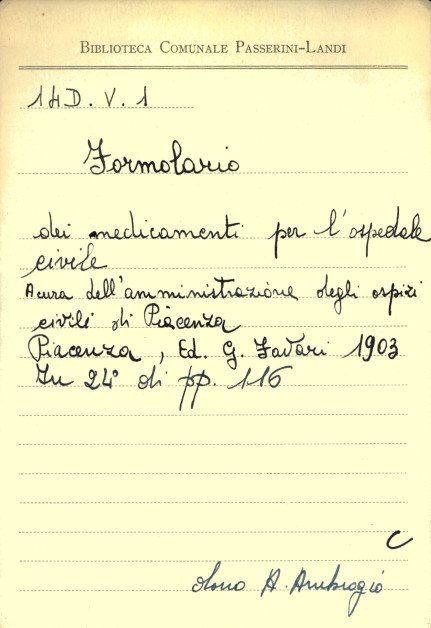 BIBLIOTECA COMUNALE PASSERINI-LANDI
14D. V. 1
Formolario
dei medicamenti per l'ospedale
civile
A cura dell'amministrazione degli ospizi
civili di Piacenza
Piacenza, Ed. G. Favari 1903
In 24° di pp. 116
C
dono A. Ambrogio